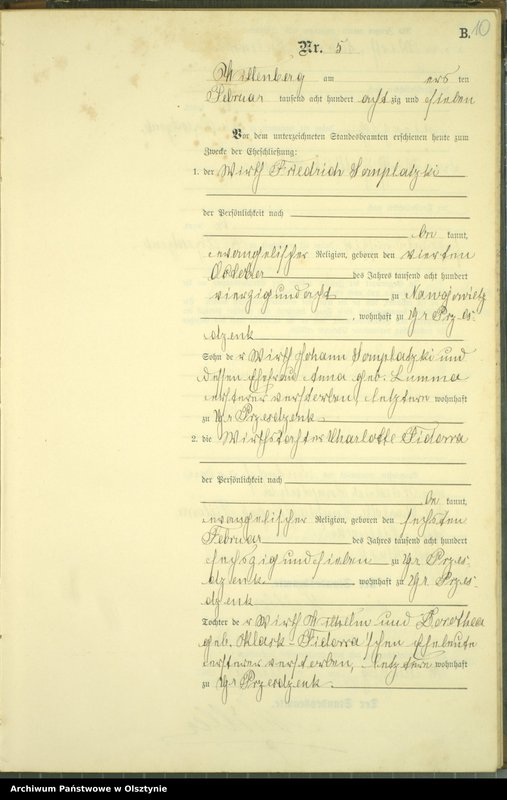 B. 10
Nr. 5
Willenberg am ersten
Februar tausend acht hundert achtzig und sieben
Vor dem unterzeichneten Standesbeamten erschienen heute zum
Zwecke der Eheschließung:
1. der Wirth Friedrich Samplatzki
der Persönlichkeit nach
be kannt,
evangelischer Religion, geboren den vierten
October des Jahres tausend acht hundert
vierzig und acht zu
, wohnhaft zu Gr Prze-
dzenk
Sohn der Wirth Johann Samplatzki und
dessen Ehefrau Anna geb. Lumma
ersterer verstorben, letztere wohnhaft
zu Gr Przesdzenk
2. die Wirthstochter Charlotte Fidorra
der Persönlichkeit nach
be kannt,
evangelischer Religion, geboren den sechsten
Februar des Jahres tausend acht hundert
sechszig und sieben zu Gr Przes-
dzenk, wohnhaft zu Gr. Przes-
dzenk
Tochter der Wirth Wilhelm und Dorothea
geb. Fidorra'schen Eheleute
ersterer verstorben, letztere wohnhaft
zu Gr Przesdzenk.
Archiwum Państwowe w Olsztynie